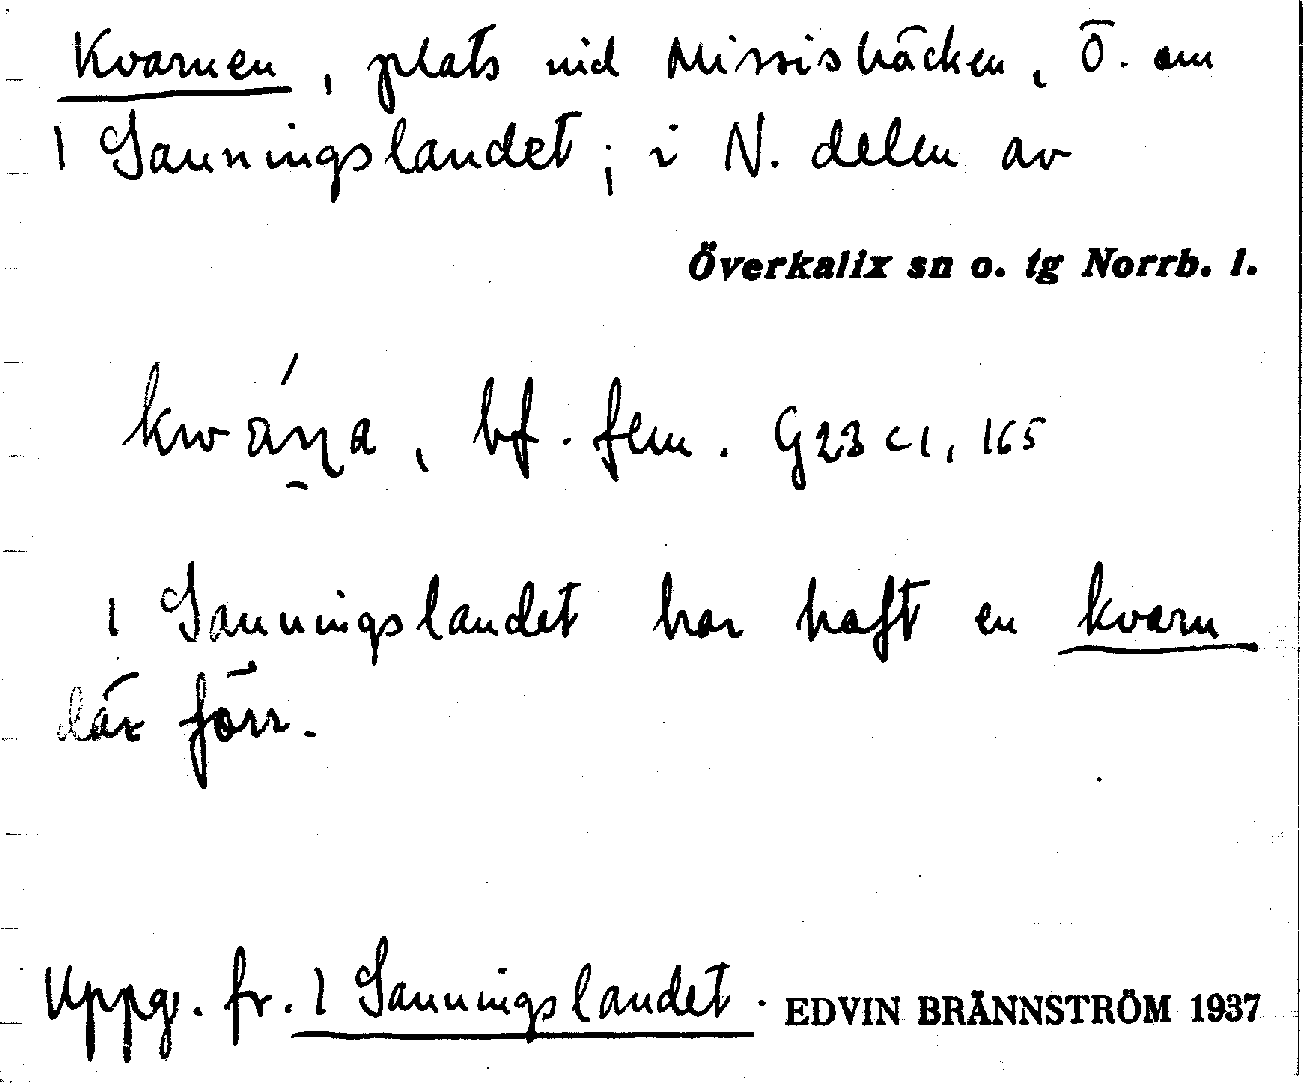 Kvarnen, plats vid Missisbäcken, Ö. om
1 Sanningslandet; i N. delen av
Överkalix sn o. tg Norrb. l.
bf. fem. G23 c1, 165
1 Sanningslandet har haft en kvarn
där förr.
Uppg. fr. 1 Sanningslandet. EDVIN BRÄNNSTRÖM 1937